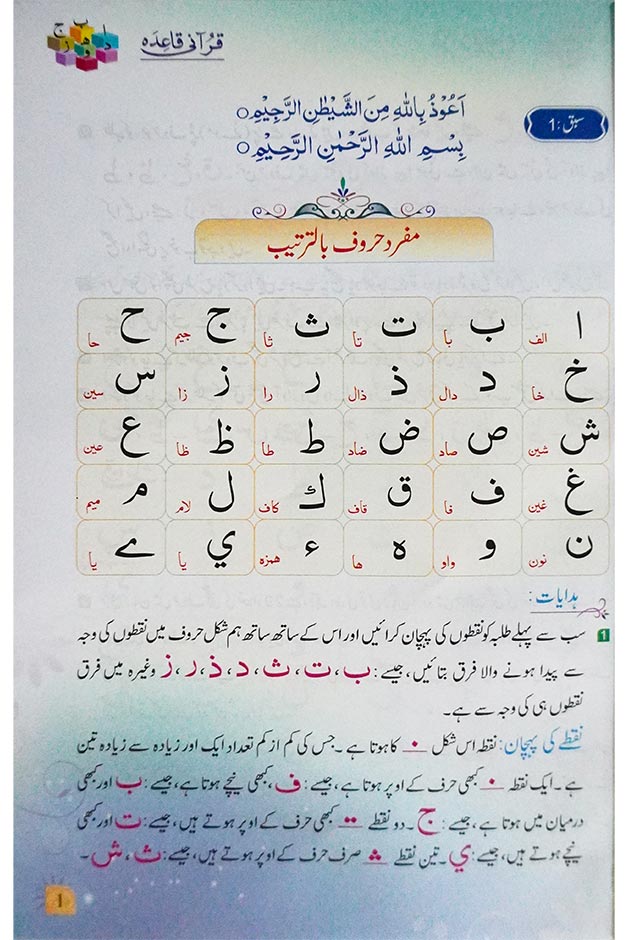 قرآنی قاعدہ
ا ب ج د ہ و ز
سبق :1
اَعُوْذُ بِاللّٰهِ مِنَ الشَّيْطٰنِ الرَّجِيْمِ○
بِسْمِ اللّٰهِ الرَّحْمٰنِ الرَّحِيْمِ○
مفرد حروف بالترتیب
ا الف ب با ت تا ث ثا ج جیم ح حا
خ خا د دال ذ ذال ر را ز زا س سین
ش شین ص صاد ض ضاد ط طا ظ ظا ع عین
غ غین ف فا ق قاف ك کاف ل لام م میم
ن نون و واو ه ھا ء ھمزہ ي یا ے یا
ہدایات :
1 سب سے پہلے طلبہ کو نقطوں کی پہچان کرائیں اور اس کے ساتھ ساتھ ہم شکل حروف میں نقطوں کی وجہ
سے پیدا ہونے والا فرق بتائیں، جیسے: ب، ت، ث، د، ذ، ر، ز وغیرہ میں فرق
نقطوں ہی کی وجہ سے ہے۔
نقطے کی پہچان: نقطہ اس شکل ۔ کا ہوتا ہے۔ جس کی کم از کم تعداد ایک اور زیادہ سے زیادہ تین
ہے۔ ایک نقطہ ۔ کبھی حرف کے اوپر ہوتا ہے، جیسے: ف، کبھی نیچے ہوتا ہے، جیسے: ب اور کبھی
درمیان میں ہوتا ہے، جیسے: ج۔ دو نقطے کبھی حرف کے اوپر ہوتے ہیں، جیسے: ت اور کبھی
نیچے ہوتے ہیں، جیسے: ي۔ تین نقطے صرف حرف کے اوپر ہوتے ہیں، جیسے: ث، ش۔
1